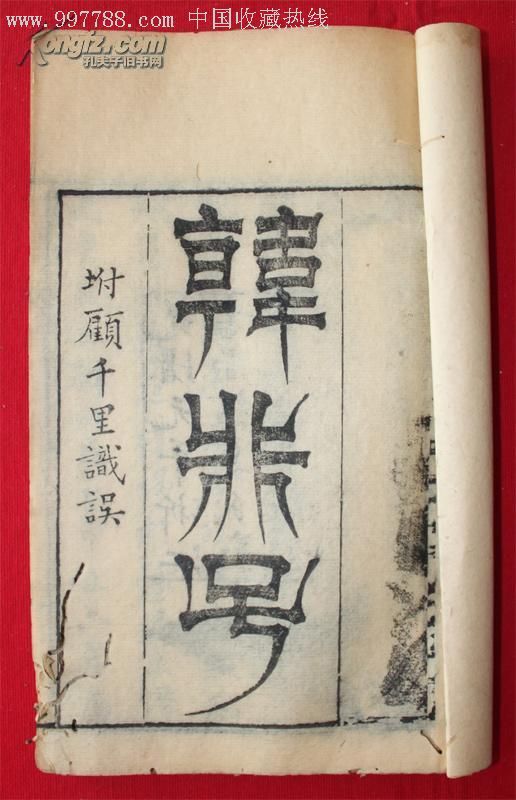 www.997788.com 中国收藏热线
Kongfz.com
孔夫子旧书网
韓非子
坿顧千里識誤